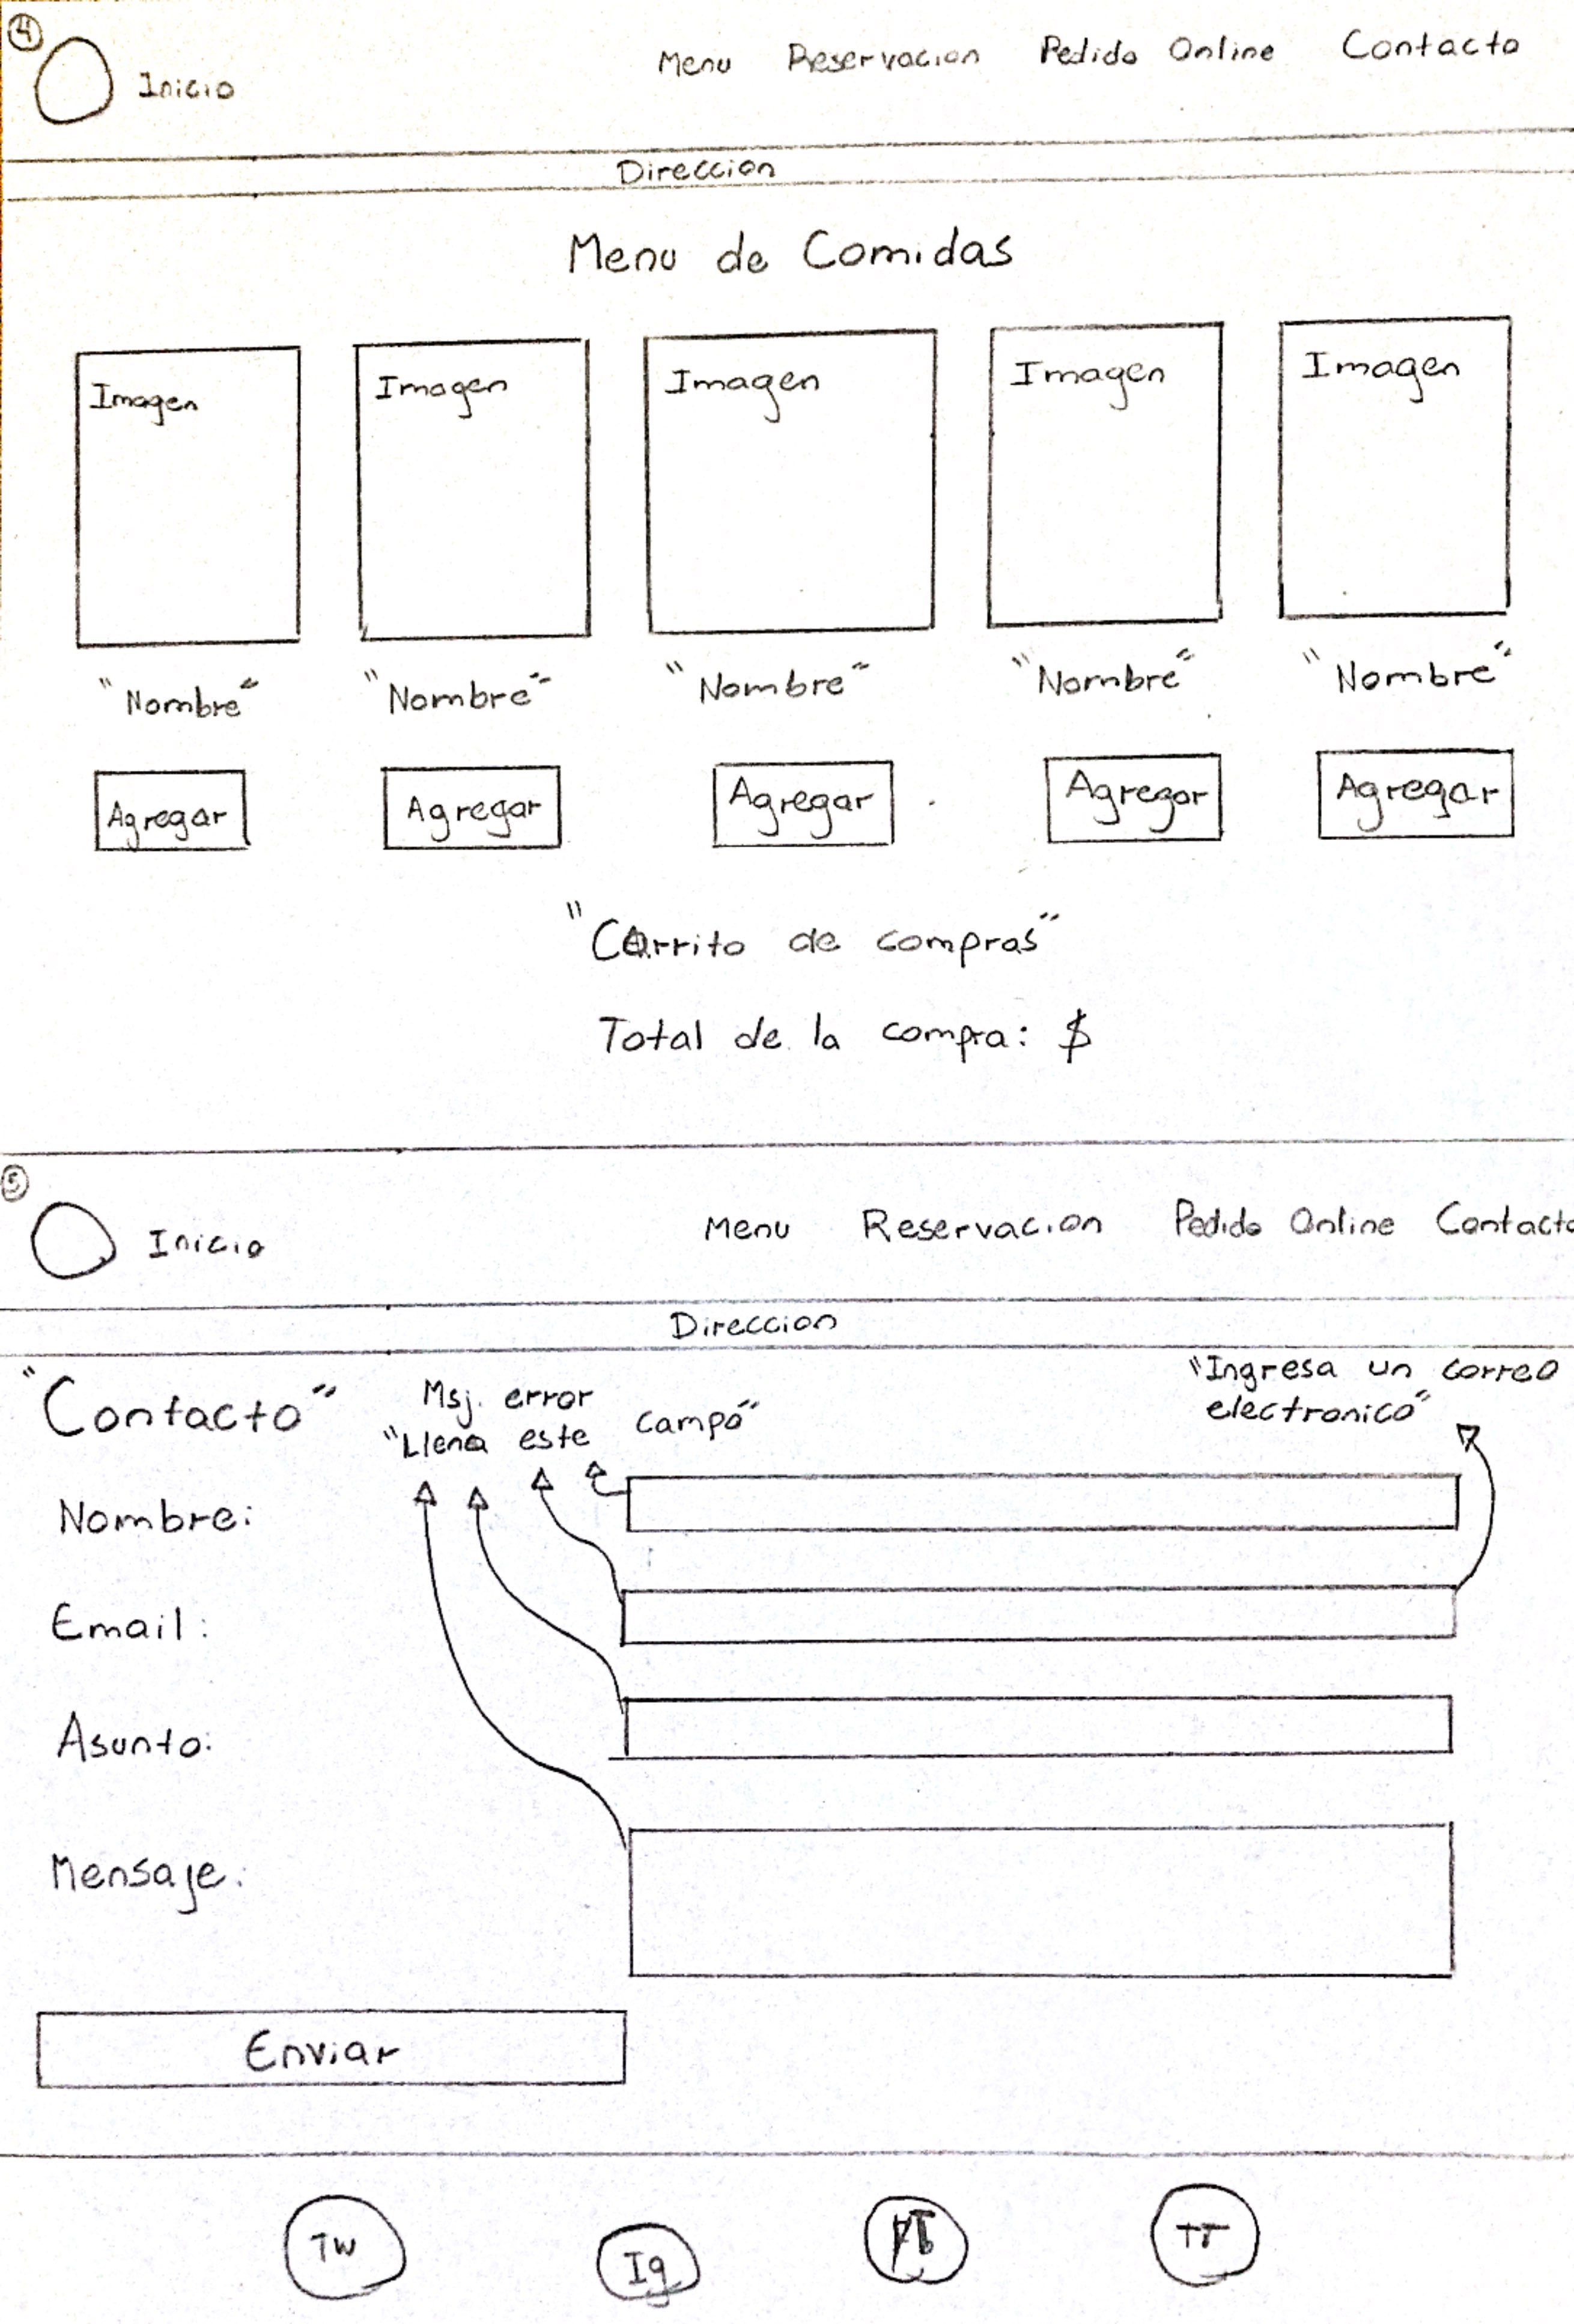 4
Inicio Menu Reservacion Pedido Online Contacto
Direccion
Menu de Comidas
Imagen Imagen Imagen Imagen Imagen
"Nombre" "Nombre" "Nombre" "Nombre" "Nombre"
Agregar Agregar Agregar Agregar Agregar
"Carrito de compras"
Total de la compra: $
5
Inicio Menu Reservacion Pedido Online Contacto
Direccion
"Contacto"
Msj. error
"Llena este campo"
"Ingresa un correo
electronico"
Nombre:
Email:
Asunto:
Mensaje:
Enviar
Tw Ig Fb TT